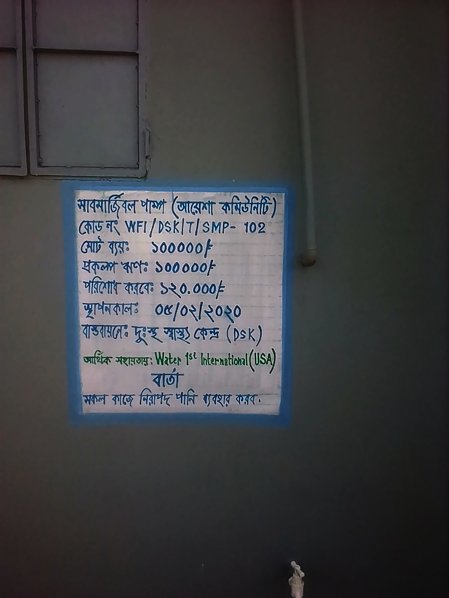 সাবমার্জিবল পাম্প (আয়েশা কমিউনিটি)
কোড নং WF1/DSK/T/SMP- 102
মোট ব্যয়ঃ ১০০০০০/-
প্রকল্প ঋণঃ ১০০০০০/-
পরিশোধ করবেঃ ১২০.০০০/-
স্থাপনকালঃ ০৫/০২/২০২০
বাস্তবায়নেঃ দুঃস্থ স্বাস্থ্য কেন্দ্র (DSK)
আর্থিক সহায়তায়ঃ Water 1st International (USA)
বার্তা
সকল কাজে নিরাপদ পানি ব্যবহার করব.